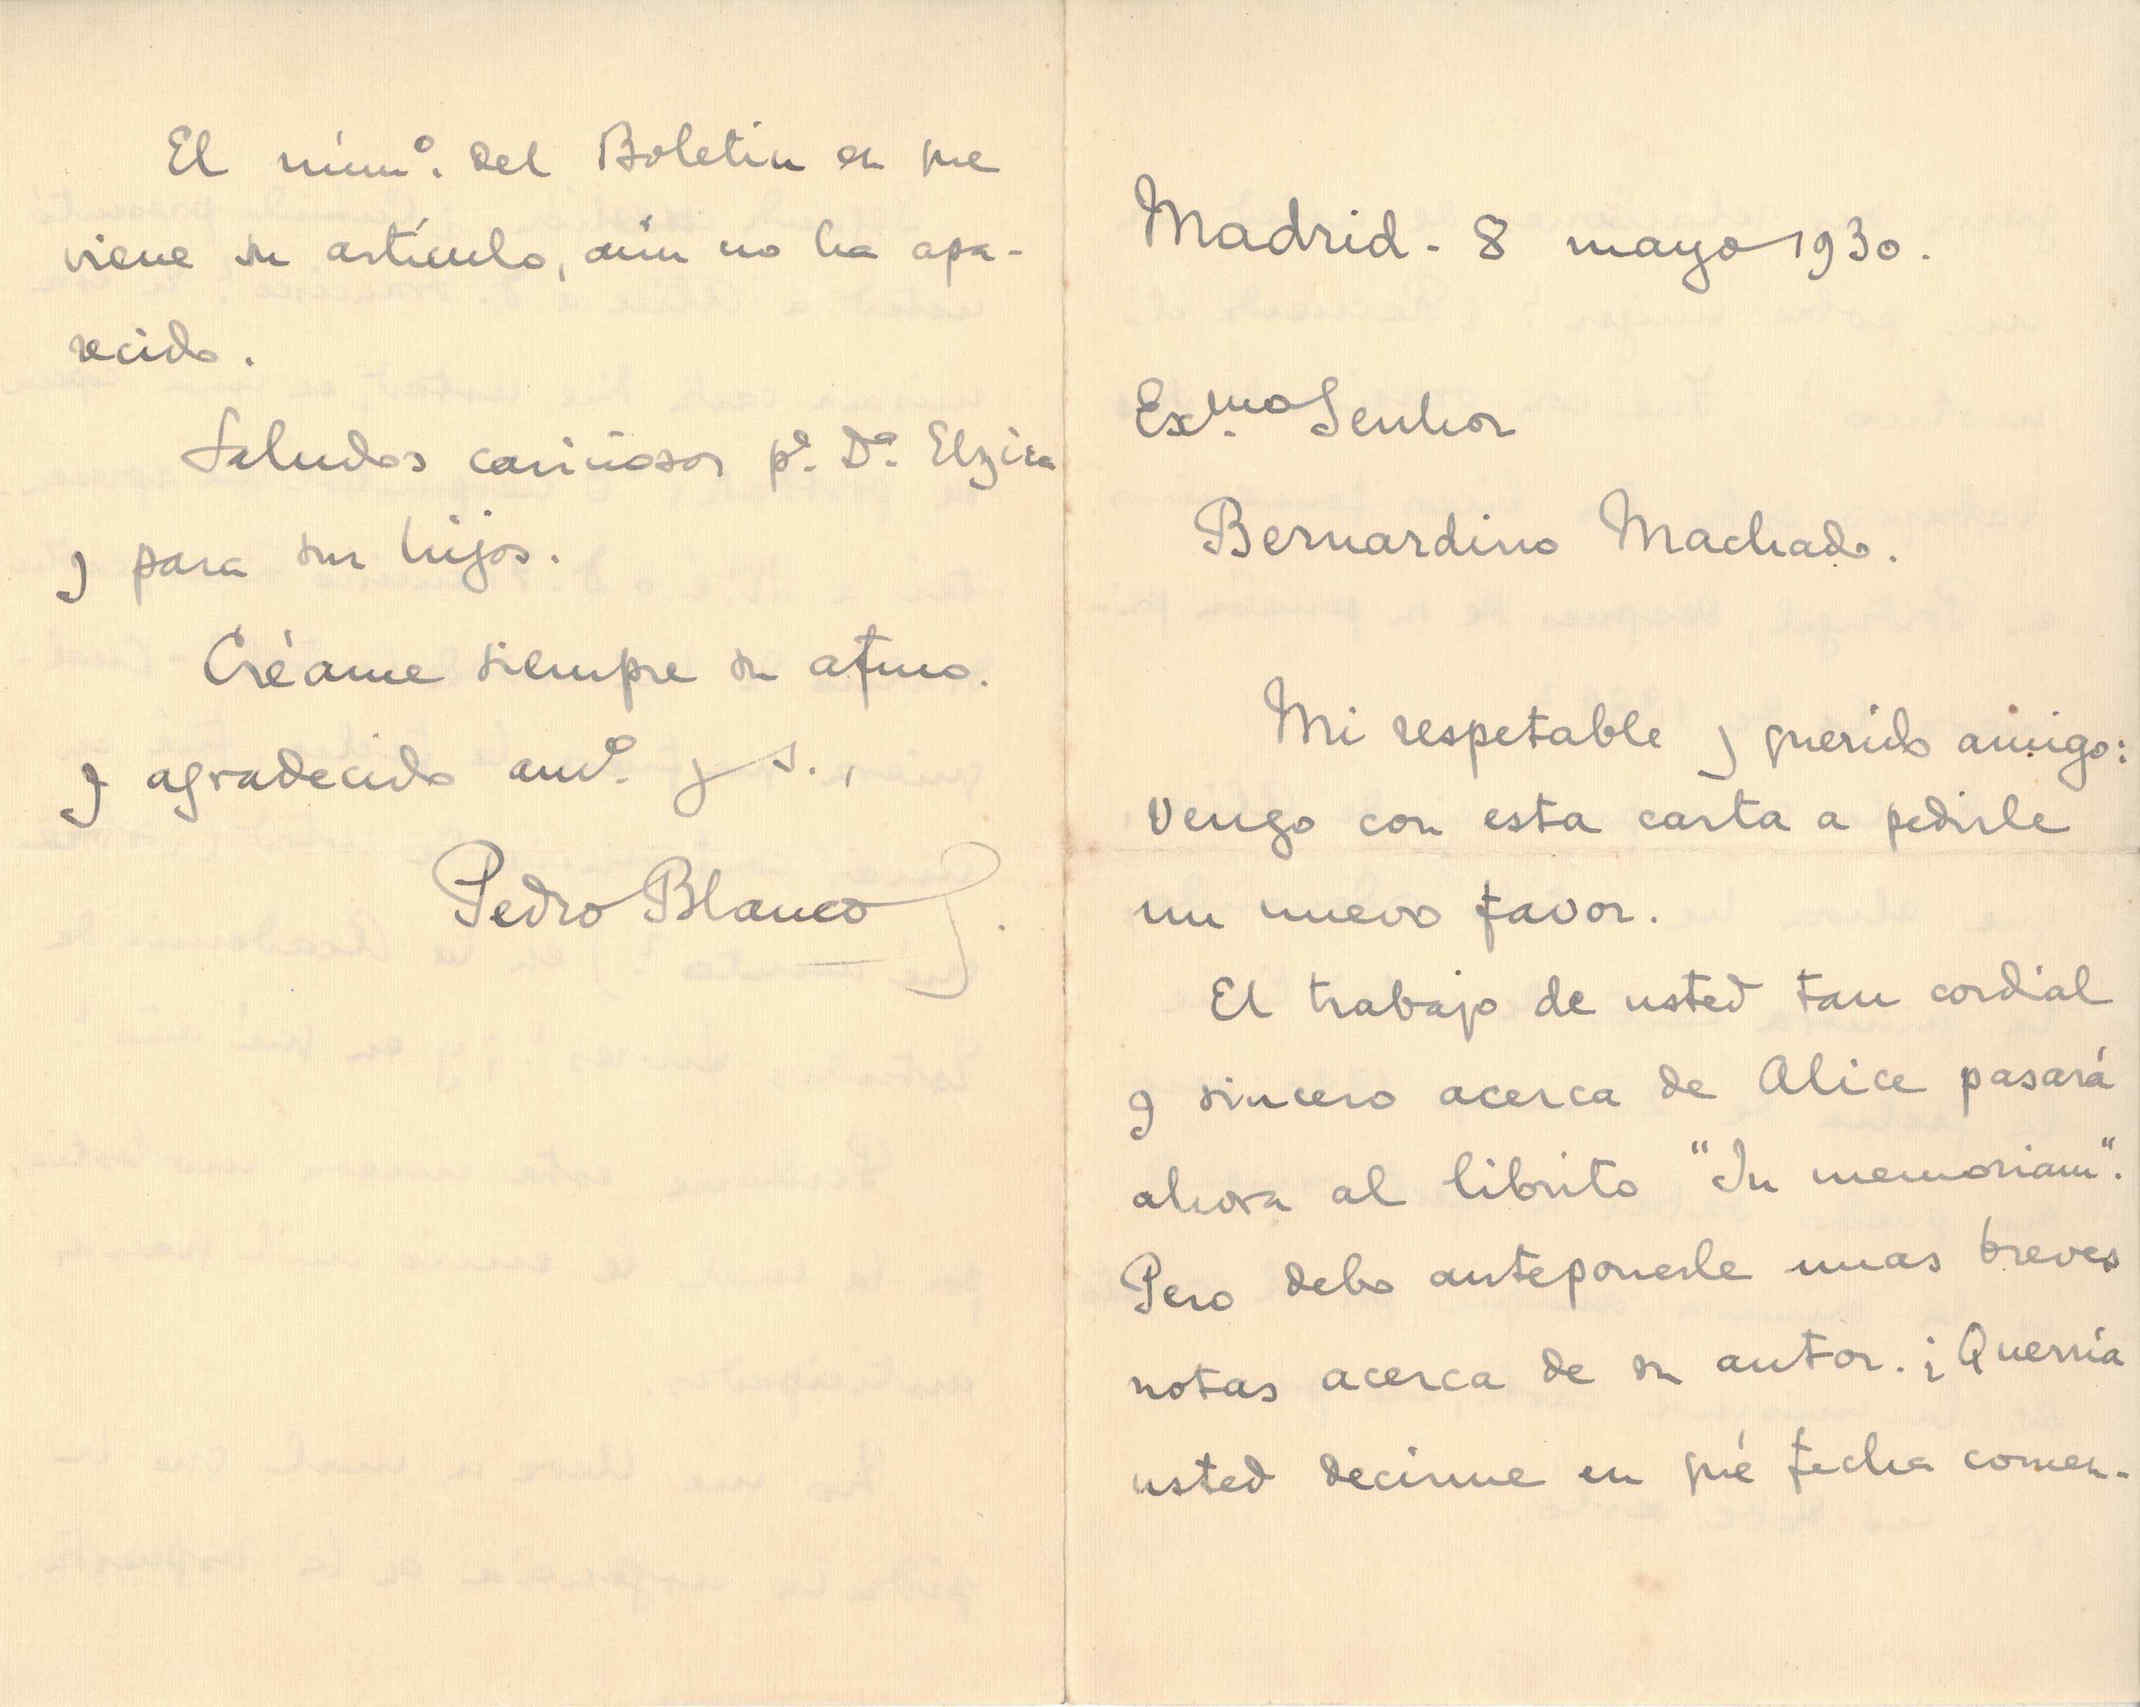 Madrid - 8 mayo 1930.
Ex.mo Senhor
Bernardino Machado.
Mi respetable y querido amigo:
Vengo con esta carta a pedirle
un nuevo favor.
El trabajo de usted tan cordial
y sincero acerca de Alice pasará
ahora al librito "In memoriam".
Pero debo anteponerle unas breves
notas acerca de su autor. ¿Querría
usted decirme en qué fecha comen-
El núm.º del Boletin en que
viene su artículo, aún no ha apa-
recido.
Saludos cariñosos pª. Dª. Elzira
y para sus hijos.
Créame siempre su afmo.
y agradecido amº. y s.,
Pedro Blanco S.